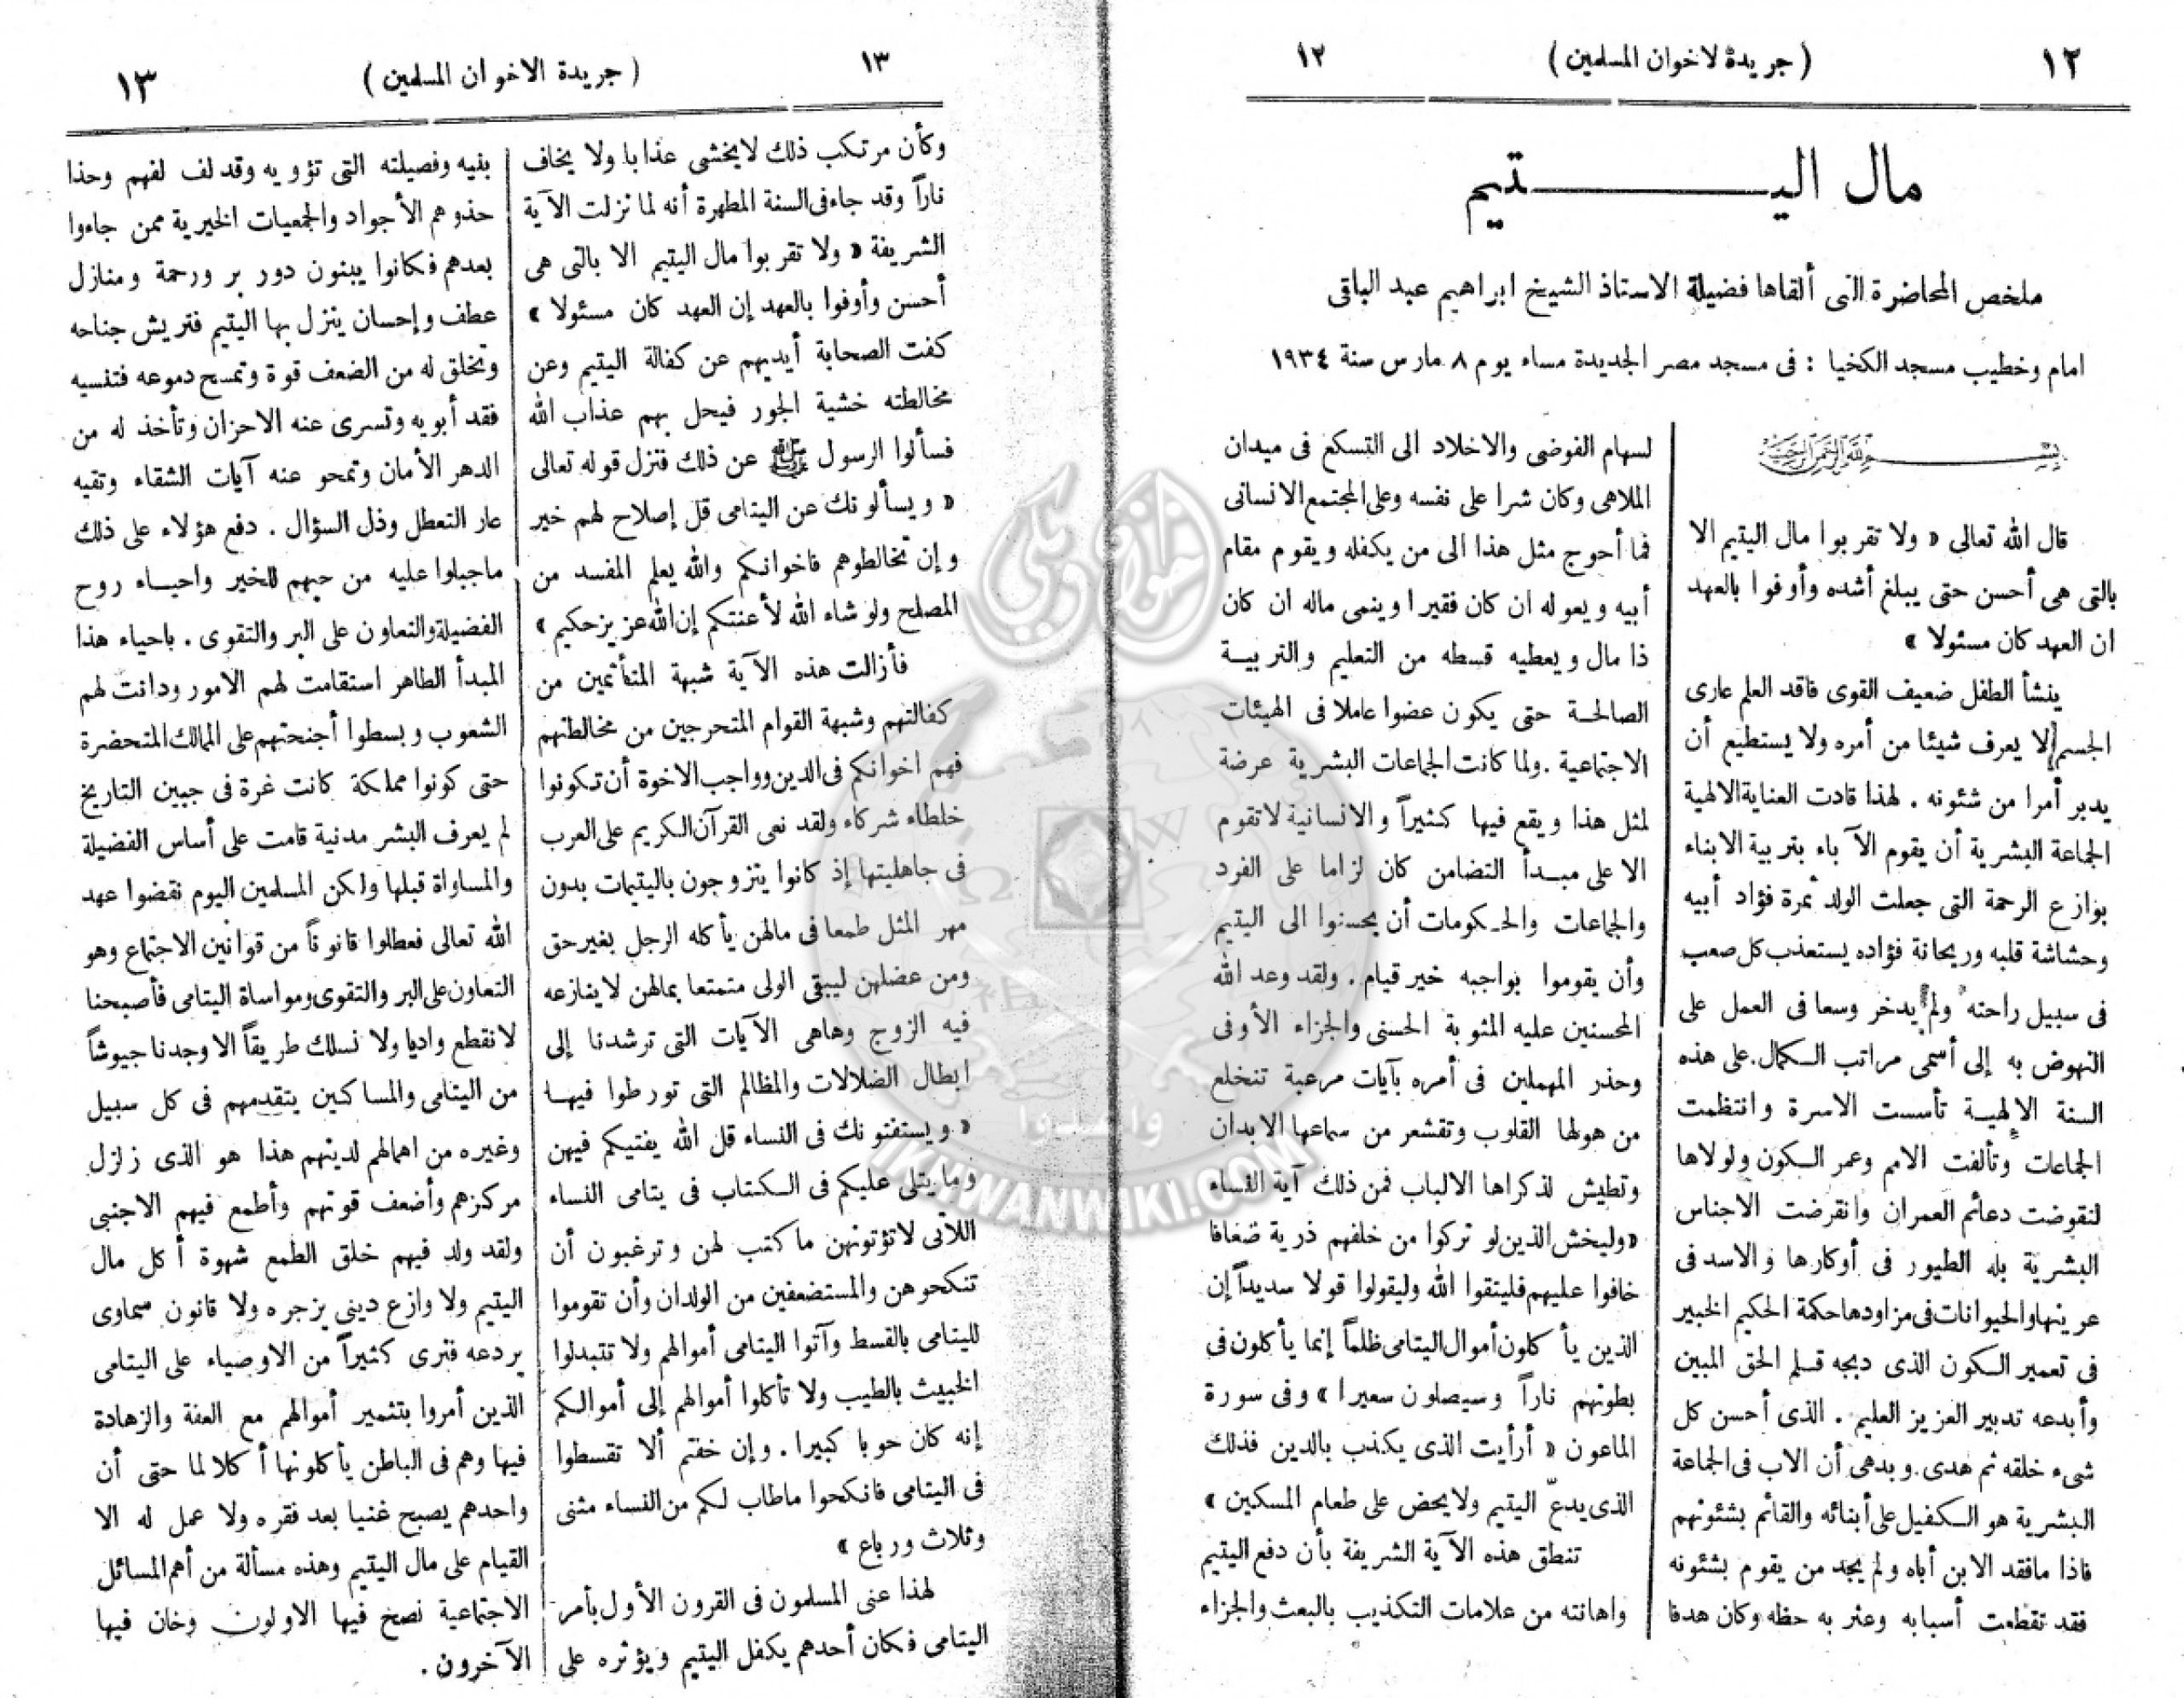 ١٢
( جريدة لاخوان المسلمين )
١٢
مال اليـــــــتيم
ملخص المحاضرة التى ألقاها فضيلة الاستاذ الشيخ ابراهيم عبد الباقى
امام وخطيب مسجد الكخيا : فى مسجد مصر الجديدة مساء يوم ٨ مارس سنة ١٩٣٤
بسم الله الرحمن الرحيم
قال الله تعالى « ولا تقربوا مال اليتيم الا
بالتى هى أحسن حتى يبلغ أشده وأوفوا بالعهد
ان العهد كان مسئولا »
ينشأ الطفل ضعيف القوى فاقد العلم عارى
الجسم لا يعرف شيئا من أمره ولا يستطيع أن
يدبر أمرا من شئونه . لهذا قادت العناية الالهية
الجماعة البشرية أن يقوم الآباء بتربية الابناء
بوازع الرحمة التى جعلت الولد ثمرة فؤاد أبيه
وحشاشة قلبه وريحانة فؤاده يستعذب كل صعب
فى سبيل راحته ولم يدخر وسعا فى العمل على
النهوض به إلى أسمى مراتب الكمال . على هذه
السنة الإلهية تأسست الاسرة وانتظمت
الجماعات وتألفت الامم وعمر الكون ولولاها
لتقوضت دعائم العمران وانقرضت الاجناس
البشرية بله الطيور فى أوكارها والاسد فى
عرينها والحيوانات فى مزاودها حكمة الحكيم الخبير
فى تعمير الكون الذى دبجه قلم الحق المبين
وأبدعه تدبير العزيز العليم . الذى أحسن كل
شىء خلقه ثم هدى . وبدهى أن الاب فى الجماعة
البشرية هو الكفيل على أبنائه والقائم بشئونهم
فاذا ما فقد الابن أباه ولم يجد من يقوم بشئونه
فقد تقطعت أسبابه وعثر به حظه وكان هدفا
لسهام الفوضى والاخلاد الى التسكع فى ميدان
الملاهى وكان شرا على نفسه وعلى المجتمع الانسانى
فما أحوج مثل هذا الى من يكفله ويقوم مقام
أبيه ويعوله ان كان فقيرا وينمى ماله ان كان
ذا مال ويعطيه قسطه من التعليم والتربيـة
الصالحـة حتى يكون عضوا عاملا فى الهيئات
الاجتماعية . ولما كانت الجماعات البشرية عرضة
لمثل هذا ويقع فيها كثيراً والانسانية لا تقوم
الا على مبـدأ التضامن كان لزاما على الفرد
والجماعات والحكومات أن يحسنوا الى اليتيم
وأن يقوموا بواجبه خير قيام . ولقد وعد الله
المحسنين عليه المثوبة الحسنى والجزاء الأوفى
وحذر المهملين فى أمره بآيات مرعبة تنخلع
من هولها القلوب وتقشعر من سماعها الابدان
وتطيش لذكراها الالباب فمن ذلك آية النساء
« وليخش الذين لو تركوا من خلفهم ذرية ضعافا
خافوا عليهم فليتقوا الله وليقولوا قولا سديداً إن
الذين يأكلون أموال اليتامى ظلماً إنما يأكلون فى
بطونهم ناراً وسيصلون سعيرا » وفى سورة
الماعون « أرأيت الذى يكذب بالدين فذلك
الذى يدعّ اليتيم ولا يحض على طعام المسكين »
تنطق هذه الآية الشريفة بأن دفع اليتيم
واهانته من علامات التكذيب بالبعث والجزاء
١٣
( جريدة الاخوان المسلمين )
١٣
وكأن مرتكب ذلك لا يخشى عذابا ولا يخاف
ناراً وقد جاء فى السنة المطهرة أنه لما نزلت الآية
الشريفة « ولا تقربوا مال اليتيم الا بالتى هى
أحسن وأوفوا بالعهد إن العهد كان مسئولا »
كفت الصحابة أيديهم عن كفالة اليتيم وعن
مخالطته خشية الجور فيحل بهم عذاب الله
فسألوا الرسول ﷺ عن ذلك فنزل قوله تعالى
« ويسألونك عن اليتامى قل إصلاح لهم خير
وإن تخالطوهم فاخوانكم والله يعلم المفسد من
المصلح ولو شاء الله لأعنتكم إن الله عزيز حكيم »
فأزالت هذه الآية شبهة المتأثمين من
كفالتهم وشبهة القوام المتحرجين من مخالطتهم
فهم اخوانكم فى الدين وواجب الاخوة أن تكونوا
خلطاء شركاء ولقد نعى القرآن الكريم على العرب
فى جاهليتها إذ كانوا يتزوجون باليتيمات بدون
مهر المثل طمعا فى مالهن يأكله الرجل بغير حق
ومن عضلهن ليبقى الولى متمتعا بمالهن لا ينازعه
فيه الزوج وهاهى الآيات التى ترشدنا إلى
ابطال الضلالات والمظالم التى تورطوا فيهـا
« ويستفتونك فى النساء قل الله يفتيكم فيهن
وما يتلى عليكم فى الكتاب فى يتامى النساء
اللآتى لا تؤتونهن ما كتب لهن وترغبون أن
تنكحوهن والمستضعفين من الولدان وأن تقوموا
لليتامى بالقسط وآتوا اليتامى أموالهم ولا تتبدلوا
الخبيث بالطيب ولا تأكلوا أموالهم إلى أموالكم
إنه كان حوبا كبيرا . وإن خفتم ألا تقسطوا
فى اليتامى فانكحوا ما طاب لكم من النساء مثنى
وثلاث ورباع »
لهذا عنى المسلمون فى القرون الأول بأمر
اليتامى فكان أحدهم يكفل اليتيم ويؤثره على
بنيه وفصيلته التى تؤويه وقد لف لفهم وحذا
حذوهم الأجواد والجمعيات الخيرية ممن جاءوا
بعدهم فكانوا يبنون دور بر ورحمة ومنازل
عطف وإحسان ينزل بها اليتيم فتريش جناحه
وتخلق له من الضعف قوة وتمسح دموعه فتنسيه
فقد أبويه وتسرى عنه الاحزان وتأخذ له من
الدهر الأمان وتمحو عنه آيات الشقاء وتقيه
عار التعطل وذل السؤال . دفع هؤلاء على ذلك
ما جبلوا عليه من حبهم للخير واحيـاء روح
الفضيلة والتعاون على البر والتقوى . باحياء هذا
المبدأ الطاهر استقامت لهم الامور ودانت لهم
الشعوب وبسطوا أجنحتهم على الممالك المتحضرة
حتى كونوا مملكة كانت غرة فى جبين التاريخ
لم يعرف البشر مدنية قامت على أساس الفضيلة
والمساواة قبلها ولكن المسلمين اليوم نقضوا عهد
الله تعالى فعطلوا قانوناً من قوانين الاجتماع وهو
التعاون على البر والتقوى ومواساة اليتامى فأصبحنا
لا نقطع واديا ولا نسلك طريقاً الا وجدنا جيوشاً
من اليتامى والمساكين يتقدمهم فى كل سبيل
وغيره من اهمالهم لدينهم هذا هو الذى زلزل
مركزهم وأضعف قوتهم وأطمع فيهم الاجنبى
ولقد ولد فيهم خلق الطمع شهوة أكل مال
اليتيم ولا وازع دينى يزجره ولا قانون سماوى
يردعه فترى كثيراً من الاوصياء على اليتامى
الذين أمروا بتثمير أموالهم مع العفة والزهادة
فيها وهم فى الباطن يأكلونها أكلا لما حتى أن
واحدهم يصبح غنيا بعد فقره ولا عمل له الا
القيام على مال اليتيم وهذه مسألة من أهم المسائل
الاجتماعية نصح فيها الاولون وخان فيها
الآخرون .
إخوان ويكي
وأعدوا
IKHWANWIKI.COM